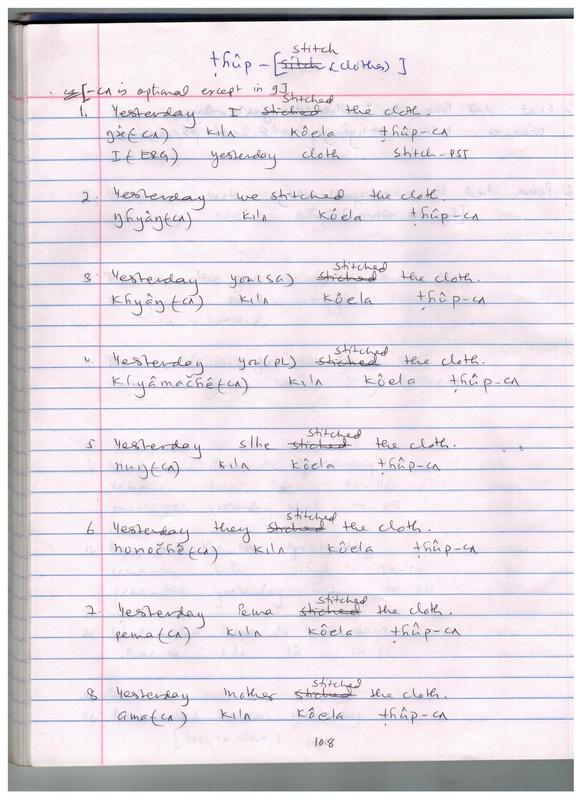 stitch
ṭɦûp – [ sitch (clothes) ]
[-cʌ is optional except in 9]
Stitched
1. Yesterday I stiched the cloth.
ŋɘ̂(cʌ) kilʌ kôela ṭɦûp-cʌ
I (ERG) yesterday cloth Stitch-PST
2. Yesterday we stitched the cloth.
ŋɦyâŋ(cʌ) kilʌ kôela ṭɦûp-cʌ
stitched
3. Yesterday you(SG) stiched the cloth.
kɦyâŋ(cʌ) kilʌ kôela ṭɦûp-cʌ
stitched
4. Yesterday you(PL) stiched the cloth.
kɦyâmačɦê(cʌ) kilʌ kôela ṭɦûp-cʌ
stitched
5 Yesterday s/he stiched the cloth.
nuŋ(cʌ) kilʌ kôela ṭɦûp-cʌ
stitched
6 Yesterday they stiched the cloth.
nomočɦê(cʌ) kilʌ kôela ṭɦûp-cʌ
stitched
7. Yesterday Pema stiched the cloth.
pema(cʌ) kilʌ kôela ṭɦûp-cʌ
stitched
8. Yesterday mother stiched the cloth.
ama(cʌ) kilʌ kôela ṭɦûp-cʌ
108